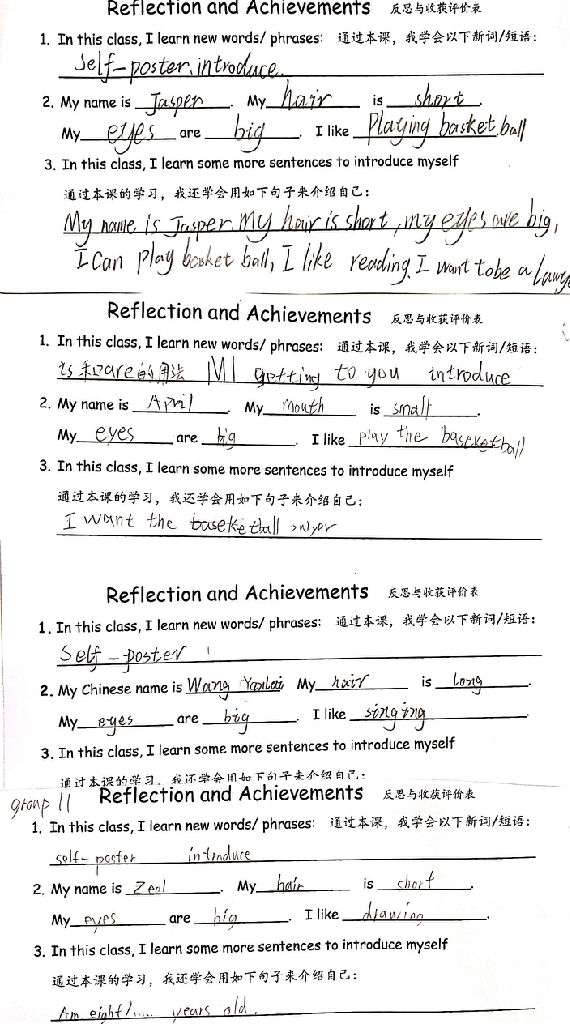 Reflection and Achievements 反思与收获评价表
1. In this class, I learn new words/ phrases: 通过本课，我学会以下新词/短语：
Self-poster, introduce.
2. My name is Jasper. My hair is short.
My eyes are big. I like Playing basket ball
3. In this class, I learn some more sentences to introduce myself
通过本课的学习，我还学会用如下句子来介绍自己：
My name is Jasper. My hair is short, my eyes are big,
I Can play basket ball, I like reading. I want to be a
Reflection and Achievements 反思与收获评价表
1. In this class, I learn new words/ phrases: 通过本课，我学会以下新词/短语：
is和are的用法 getting to you introduce
2. My name is April. My mouth is small.
My eyes are big. I like play the baseketball
3. In this class, I learn some more sentences to introduce myself
通过本课的学习，我还学会用如下句子来介绍自己：
I want the baseketball
Reflection and Achievements 反思与收获评价表
1. In this class, I learn new words/ phrases: 通过本课，我学会以下新词/短语：
Self-poster
2. My Chinese name is Wang My hair is Long.
My eyes are big. I like singing.
3. In this class, I learn some more sentences to introduce myself
通过本课的学习，我还学会用如下句子来介绍自己：
group 11 Reflection and Achievements 反思与收获评价表
1. In this class, I learn new words/ phrases: 通过本课，我学会以下新词/短语：
self-poster introduce
2. My name is . My hair is short.
My eyes are big. I like drawing.
3. In this class, I learn some more sentences to introduce myself
通过本课的学习，我还学会用如下句子来介绍自己：
Am eight years old.